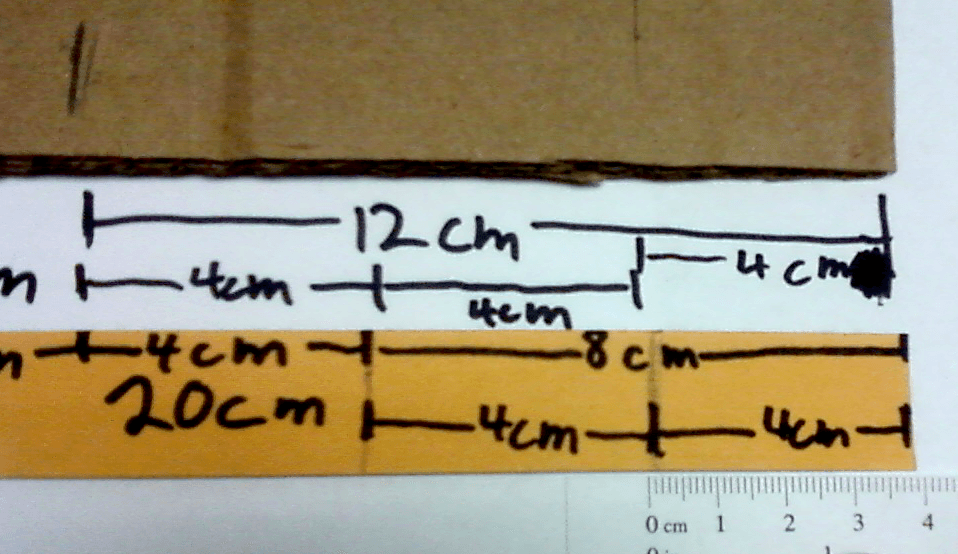 12cm
m 4cm 4cm 4cm
m 4cm 8cm
20cm 4cm 4cm
0 cm 1 2 3 4